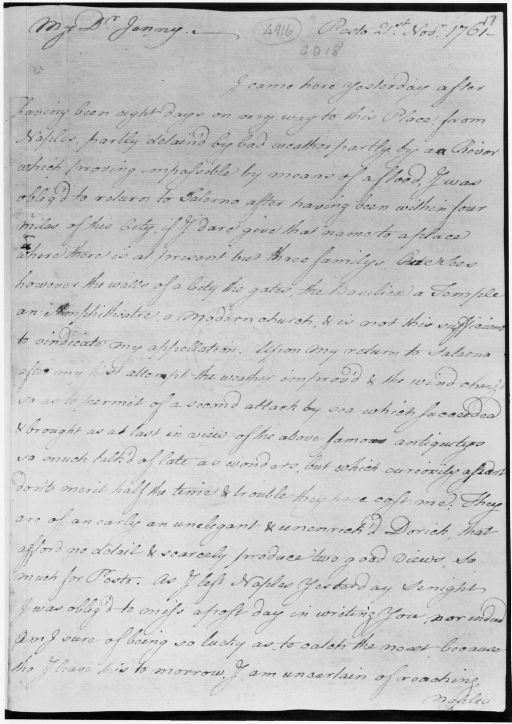 My Dr. Jenny.
4916
Pesto 21st. Novr. 1761
17
GD18
I came here yesterday after
having been eight days on my way to this Place from
Naples, partly detain'd by bad weather partly by a River
which proving impassible by means of a flood, I was
oblig'd to return to Salerno after having been within four
miles of this City, if I dare give that name to a place
where there is at present but three familys. One sees
however the walls of a City the gates, the Basilica a Temple
an Amphitheatre, a modern church, & is not this sufficient
to vindicate my appellation. Upon my return to Salerno
after my first attempt the weather improv'd & the wind chang'd
so as to permit of a second attack by sea which succeeded
& brought us at last in view of the above famous antiquitys
so much talk'd of late as wonders, but which curiosity apart
don't merit half the time & trouble they have cost me. They
are of an early an unelegant & unenrich'd Dorick, that
afford no detail & scarcely produce two good views, so
much for Pesto. As I left Naples yesterday senight
I was oblig'd to miss a post day in writing You, nor indeed
am I sure of being so lucky as to catch the next because
tho I leave this to morrow, I am uncertain of reaching
Naples